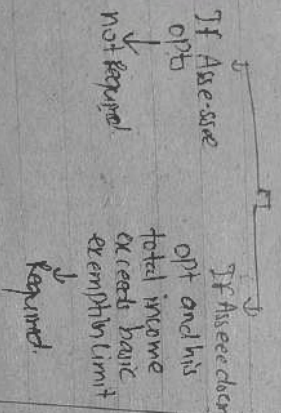 If Assessee
opts
↓
not Required
If Assessee doesn
opt and his
total income
exceeds basic
exemption limit
↓
Required.